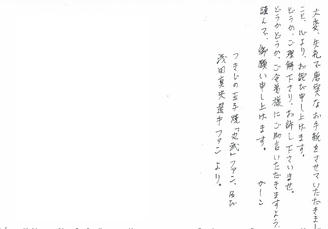 大変、失礼で唐突なお手紙をさせていただきまし
こと、心より、お詫び申し上げます。
どうか、ご理解下さり、お許し下さいませ。
どうかどうか、ご令息様にご助言いただきますよう、
謹んで、御願い申し上げます。 かーン
つきじの玉子焼「丸武」ファン、及び
浅田真央選手ファンより。